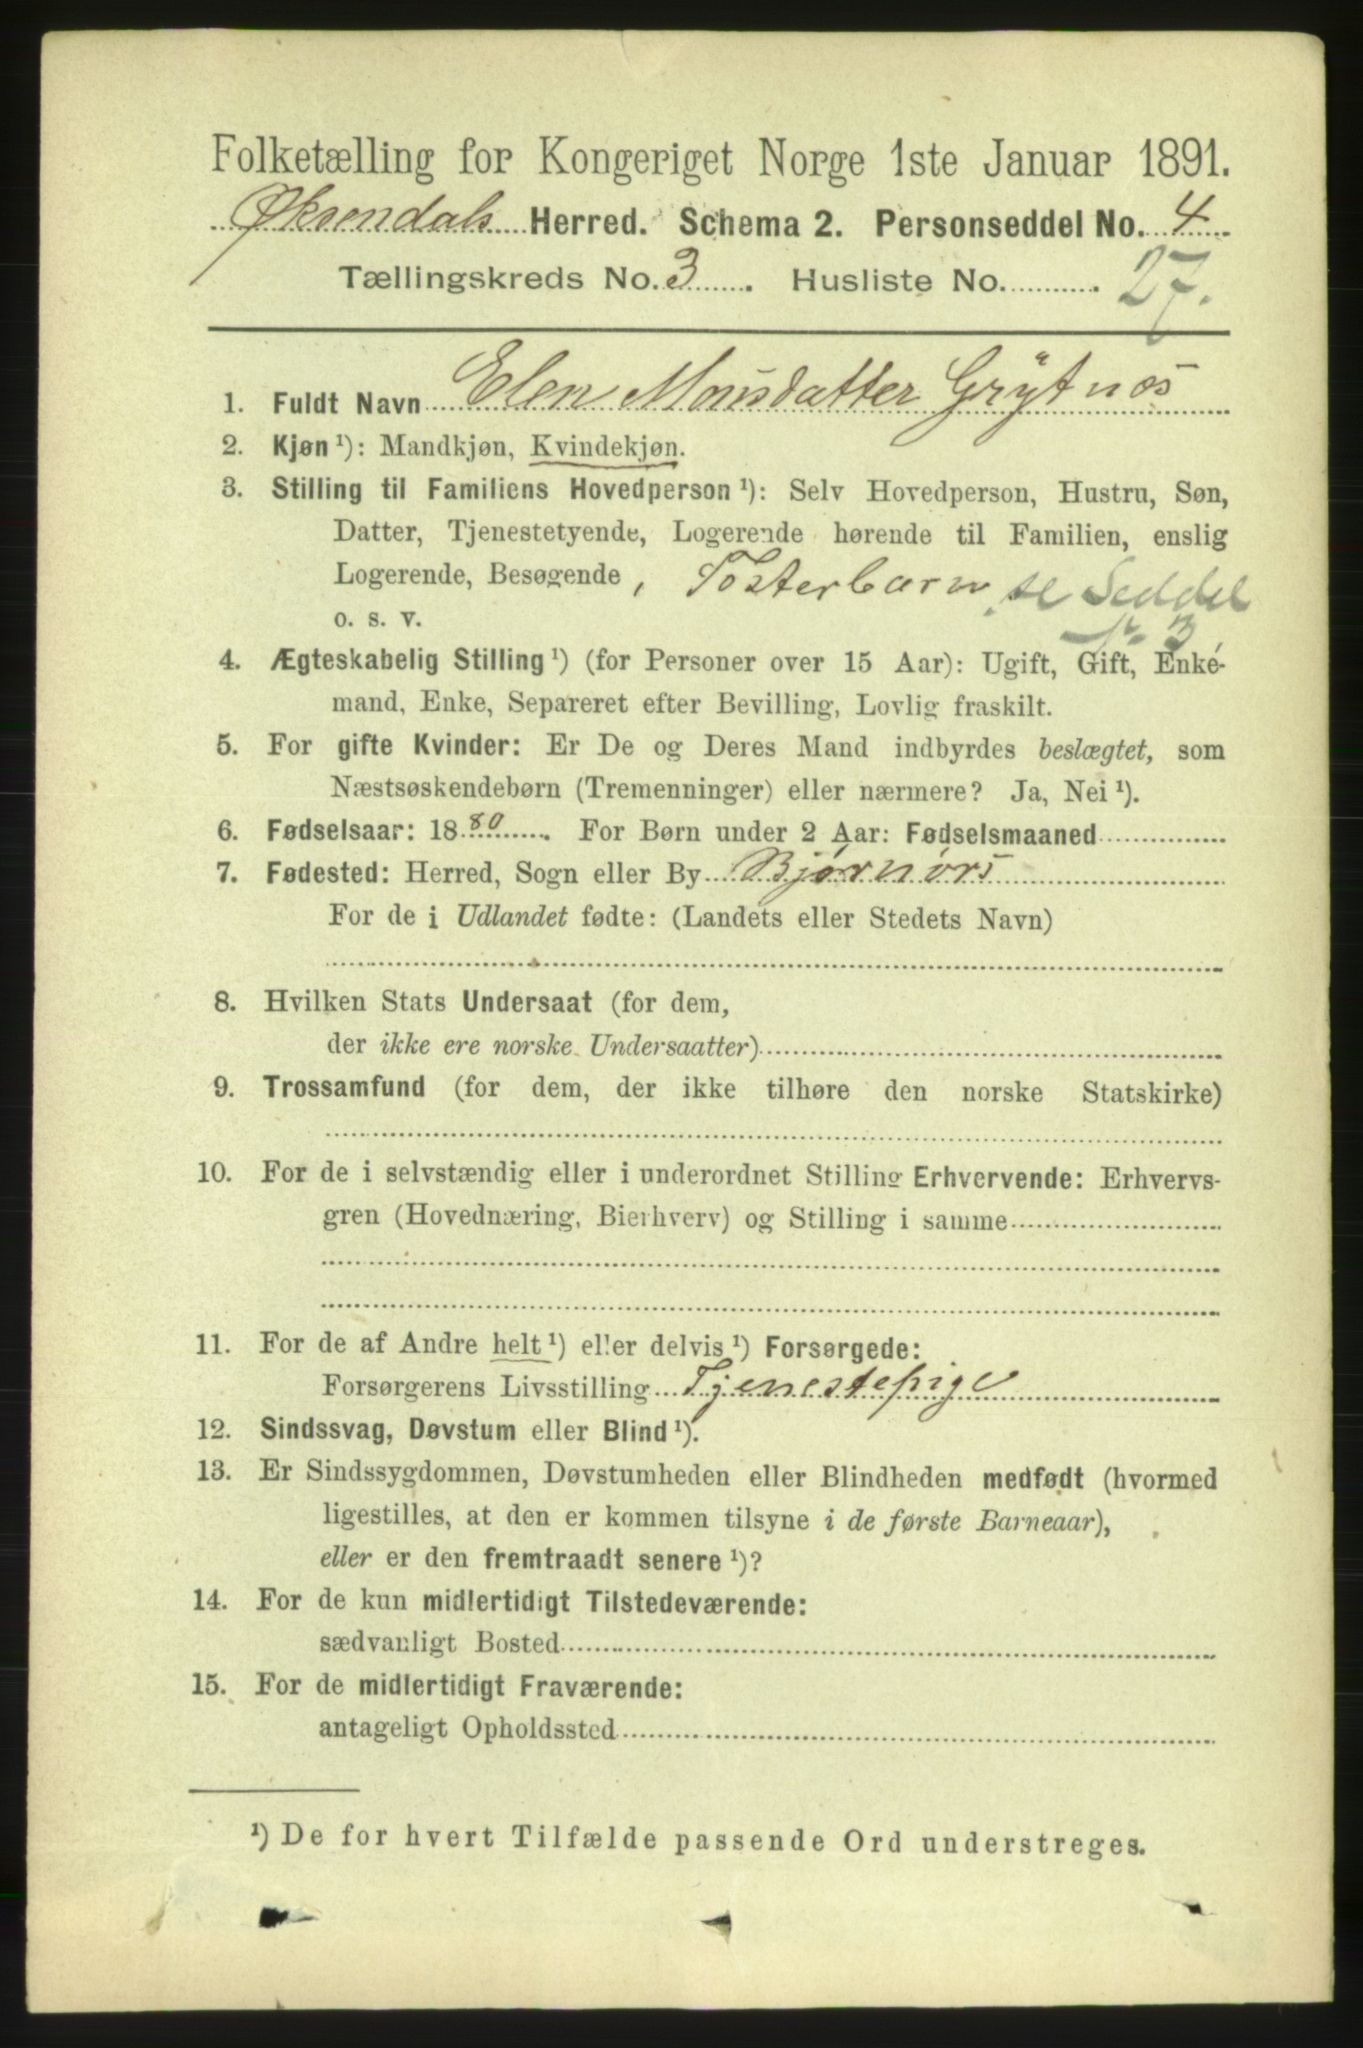 Folketælling for Kongeriget Norge 1ste Januar 1891.
Øksendals Herred. Schema 2. Personseddel No. 4
Tællingskreds No. 3. Husliste No. 27.
1. Fuldt Navn Elen Monsdatter Grytnes
2. Kjøn ¹): Mandkjøn, Kvindekjøn.
3. Stilling til Familiens Hovedperson ¹): Selv Hovedperson, Hustru, Søn,
Datter, Tjenestetyende, Logerende hørende til Familien, enslig
Logerende, Besøgende, Fosterbarn se Seddel
o. s. v. No 3
4. Ægteskabelig Stilling ¹) (for Personer over 15 Aar): Ugift, Gift, Enke-
mand, Enke, Separeret efter Bevilling, Lovlig fraskilt.
5. For gifte Kvinder: Er De og Deres Mand indbyrdes beslægtet, som
Næstsøskendebørn (Tremenninger) eller nærmere? Ja, Nei ¹).
6. Fødselsaar: 1880. For Børn under 2 Aar: Fødselsmaaned
7. Fødested: Herred, Sogn eller By Bjørnørs
For de i Udlandet fødte: (Landets eller Stedets Navn)
8. Hvilken Stats Undersaat (for dem,
der ikke ere norske Undersaatter)
9. Trossamfund (for dem, der ikke tilhøre den norske Statskirke)
10. For de i selvstændig eller i underordnet Stilling Erhvervende: Erhvervs-
gren (Hovednæring, Bierhverv) og Stilling i samme
11. For de af Andre helt ¹) eller delvis ¹) Forsørgede:
Forsørgerens Livsstilling Tjenestepige
12. Sindssvag, Døvstum eller Blind ¹).
13. Er Sindssygdommen, Døvstumheden eller Blindheden medfødt (hvormed
ligestilles, at den er kommen tilsyne i de første Barneaar),
eller er den fremtraadt senere ¹)?
14. For de kun midlertidigt Tilstedeværende:
sædvanligt Bosted
15. For de midlertidigt Fraværende:
antageligt Opholdssted
¹) De for hvert Tilfælde passende Ord understreges.